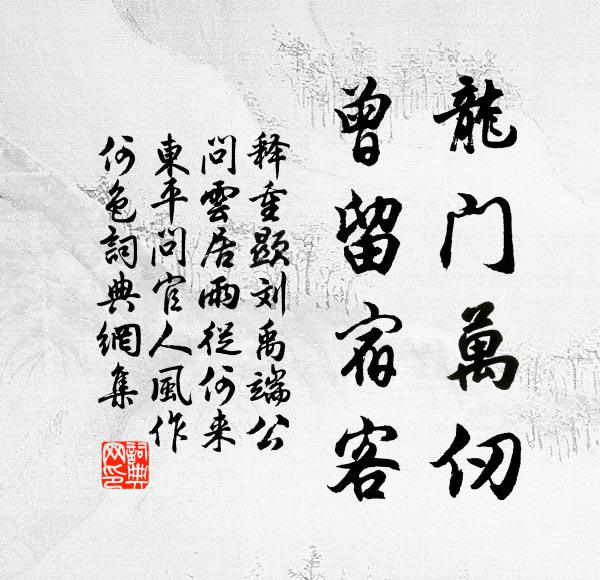 龍门萬仞
曾留宿客
释重顯刘禹端公
問雲居雨從何来
東平問官人風作
何色詞典網集
詞典
网印